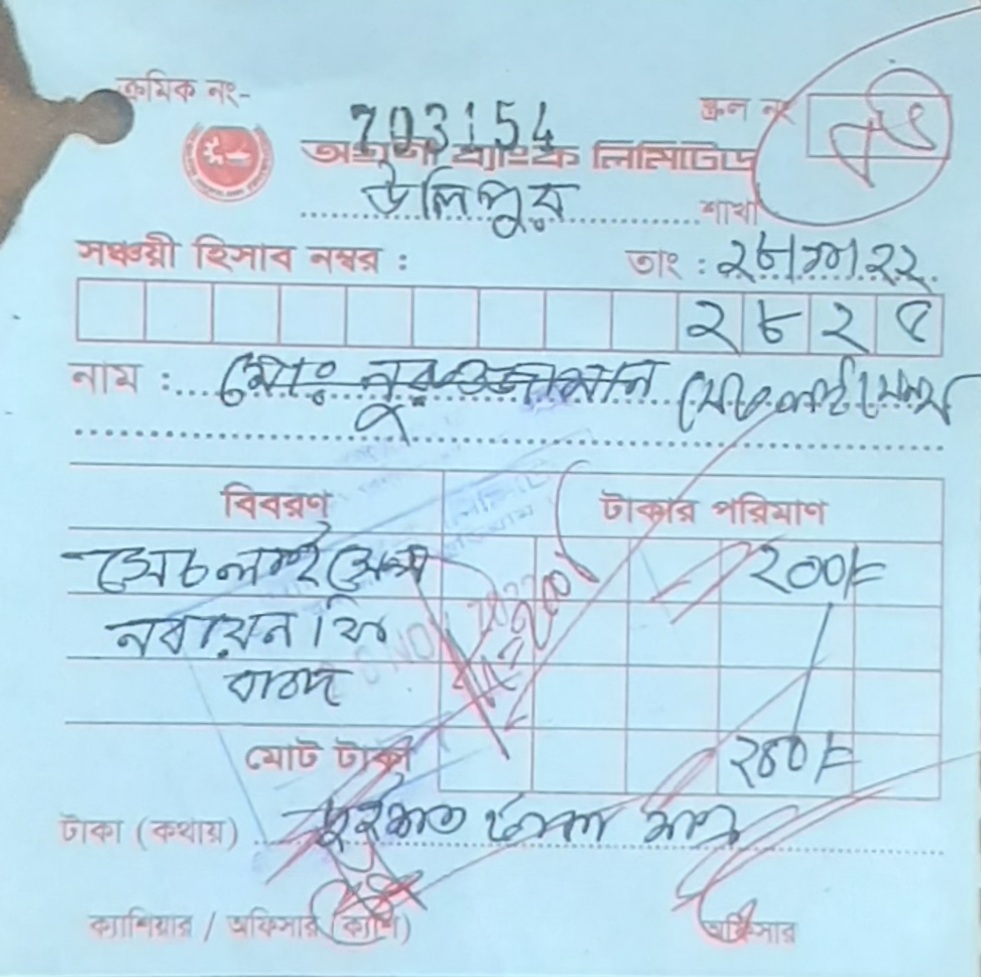 ক্রমিক নং-
703154
স্ক্রল নং
অগ্রণী ব্যাংক লিমিটেড
উলিপুর শাখা
সঞ্চয়ী হিসাব নম্বর :
তাং : ২৮/১১/২২
২৮২৫
নাম : মোঃ নুরুজ্জামান
বিবরণ টাকার পরিমাণ
২০০/=
নবায়ন ফি
বাবদ
মোট টাকা ২০০/=
টাকা (কথায়) দুইশত টাকা মাত্র
ক্যাশিয়ার / অফিসার (ক্যাশ) অফিসার